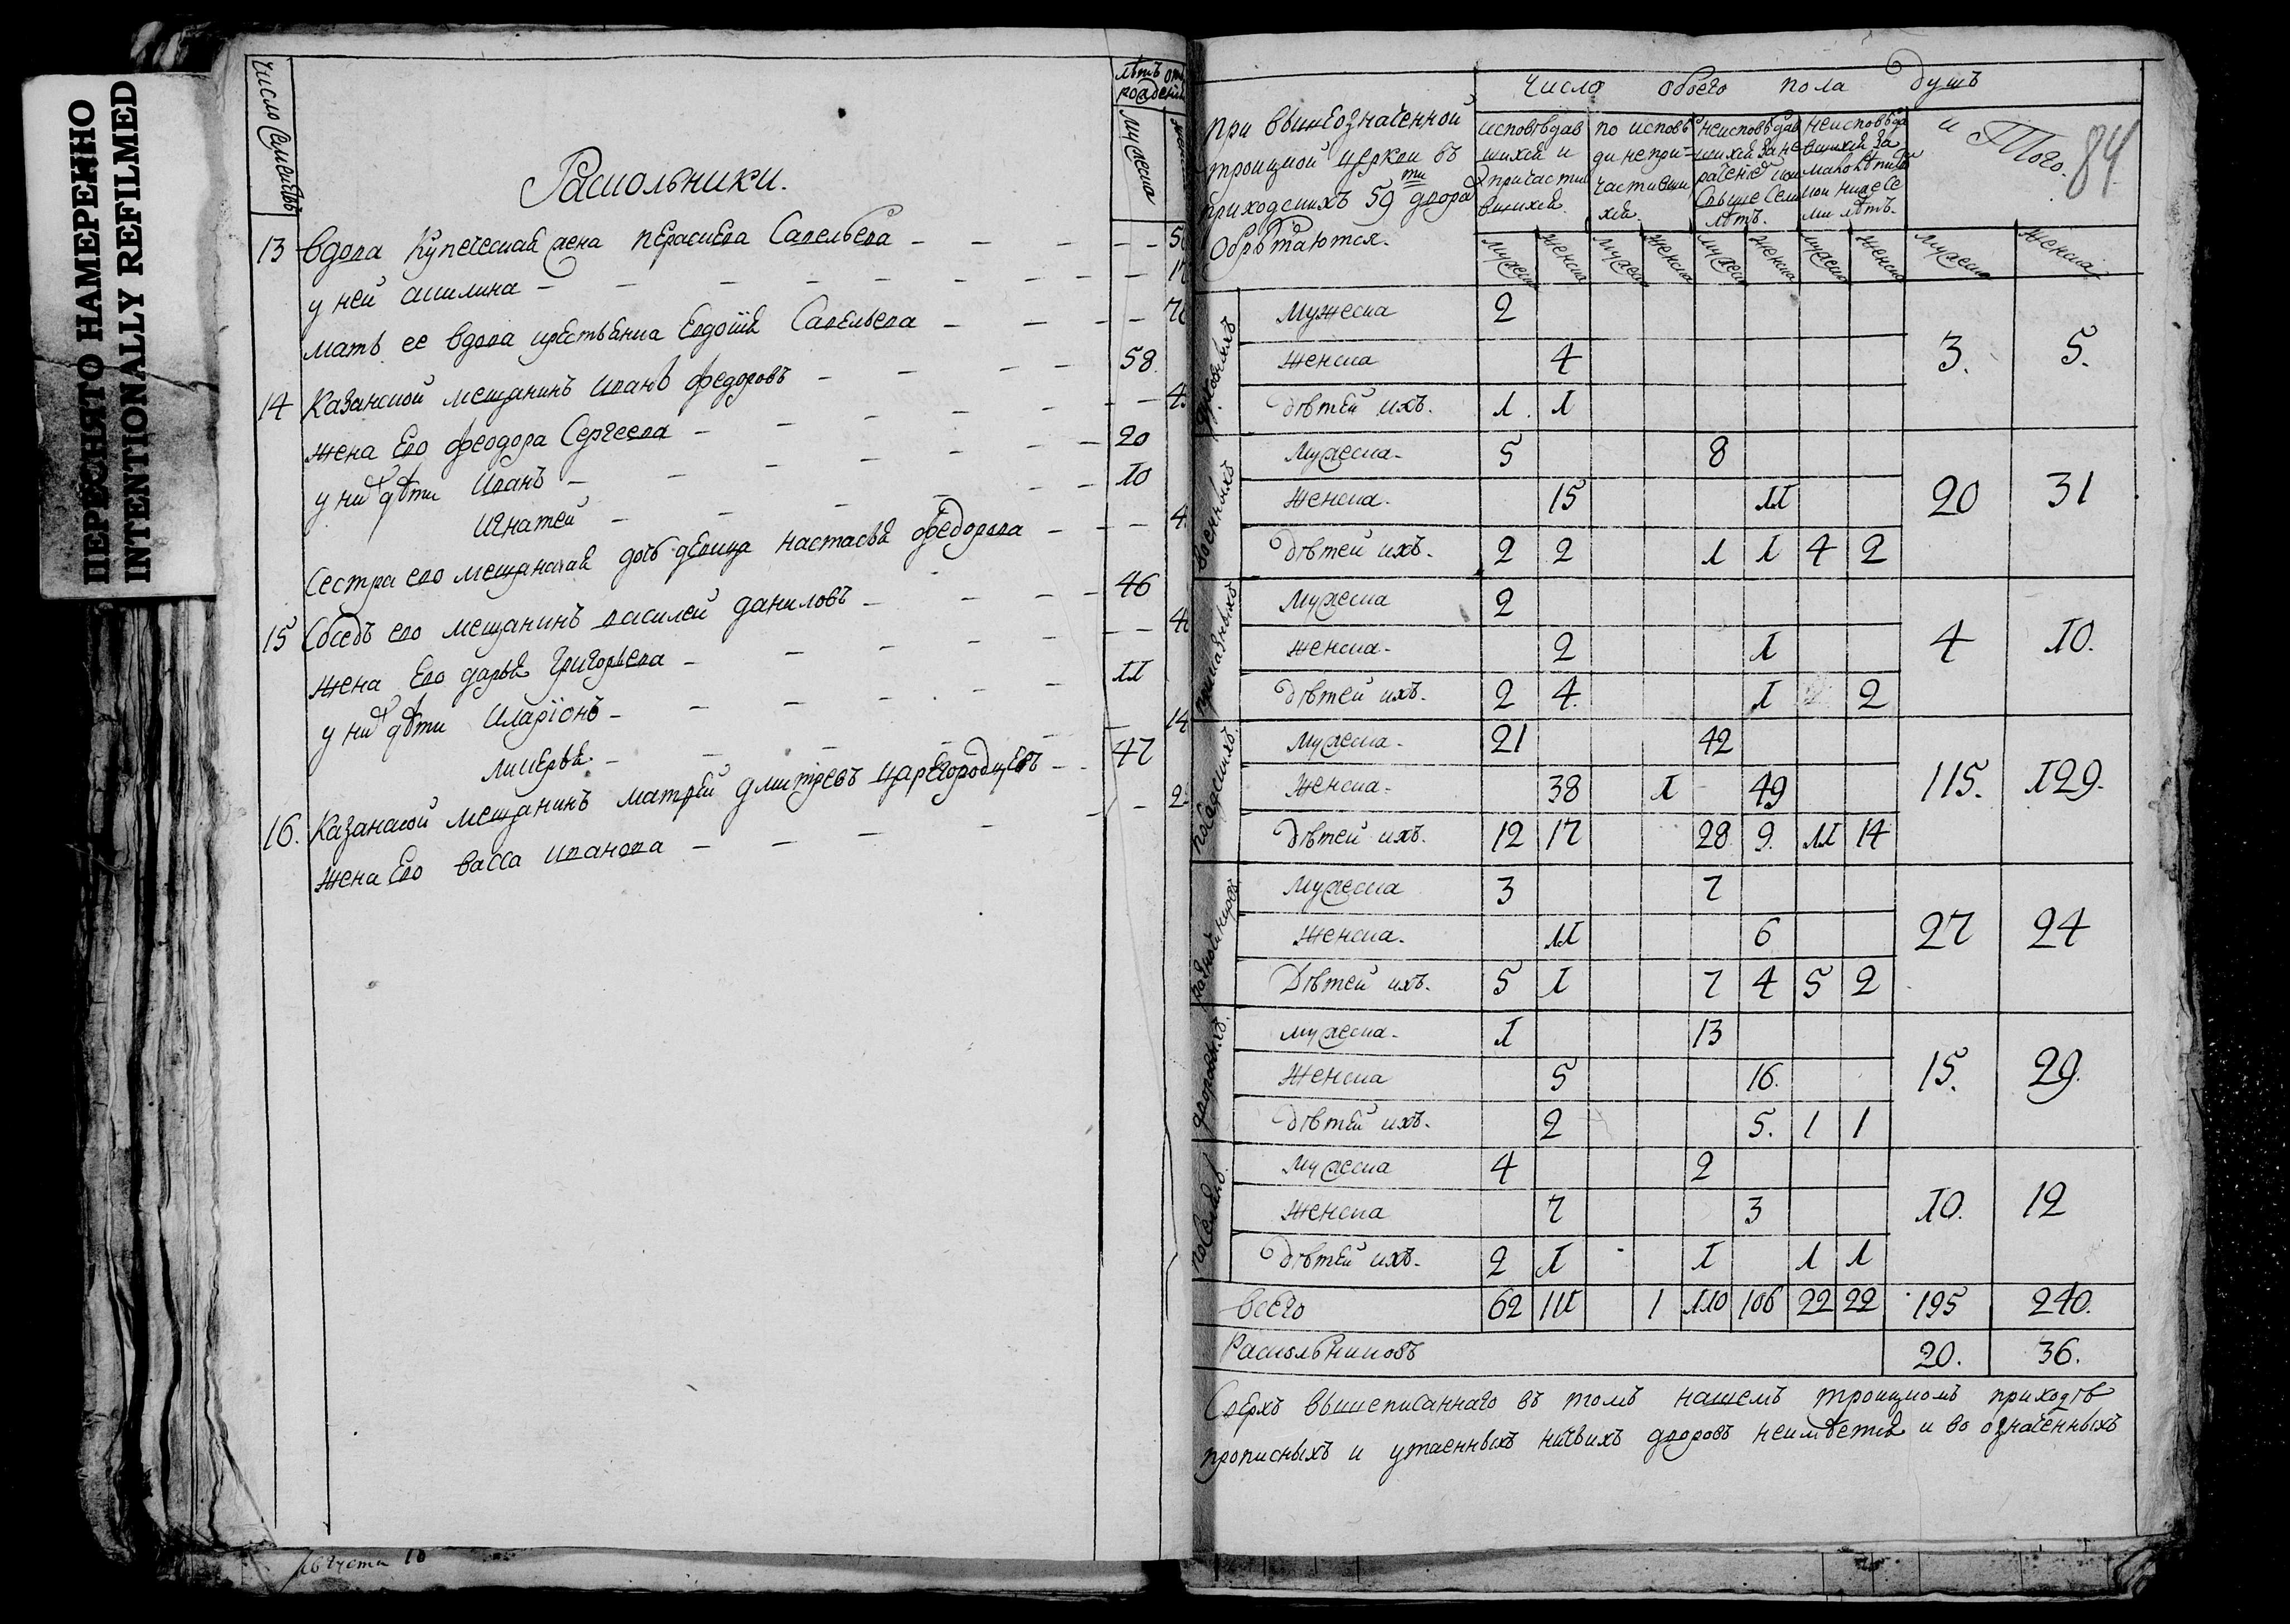 ПЕРЕСНЯТО НАМЕРЕННО
INTENTIONALLY REFILMED
Число Семействъ
лѣтъ отъ рожденія
мужеска
Раскольники.
13 вдова купеческая жена Парасковья Савельева
у ней Акилина
мать ее вдова крестьянка Евдокія Савельева
14 Казанской мещанинъ Иванъ федоровъ 58
жена Его феодора Сергеева
у них дѣти Иванъ 20
Игнатей 10
сестра его мещанская дочь девица настасья федорова
15 Сосѣдъ его мещанинъ василей даниловъ 46
жена Его дарья Григорьева
у них дѣти Иларіонъ 11
Ликерья
16. Казанской мещанинъ матвей дмитревъ царегородцевъ 47
жена Его васса иванова
августа 10
84
Число обоего пола душъ
при вышеозначенной троицкой церкви въ приходскихъ 59 ти дворахъ обрѣтаются.
исповѣдавшихся и причастившихся.
по исповѣди не причастившихся.
неисповѣдавшихся за нерачение свыше Семи лѣтъ.
неисповѣдавшихся за малолѣтии ниже Семи лѣтъ.
и Того.
мужеска женска мужеска женска мужеска женска мужеска женска мужеска женска
духовныхъ
Мужеска 2
женска 4 3. 5.
Дѣтей ихъ. 1. 1
военныхъ
Мужеска 5 8
женска. 15 11 20 31
Дѣтей ихъ. 2 2 1 1 4 2
приказныхъ
Мужеска 2
женска 2 1 4 10.
Дѣтей ихъ. 2 4. 1 2
посадскихъ.
Мужеска 21 42
женска 38 1 49 115. 129.
Дѣтей ихъ. 12 17 28 9. 11 14
Мужеска 3 7
женска. 11 6 27 24
Дѣтей ихъ. 5 1 7 4 5 2
дворовыхъ.
мужеска 1 13
женска 5 16. 15. 29.
Дѣтей ихъ. 2 5. 1 1
поселянъ.
мужеска 4 2
женска 7 3 10. 12
Дѣтей ихъ. 2 1 1 1 1
всего 62 111 1 110 106 22 22 195 240.
Раскольниковъ 20. 36.
Сверхъ вышеписаннаго въ томъ нашемъ троицкомъ приходѣ
прописныхъ и утаенныхъ никакихъ дворовъ неимѣется и во означенныхъ